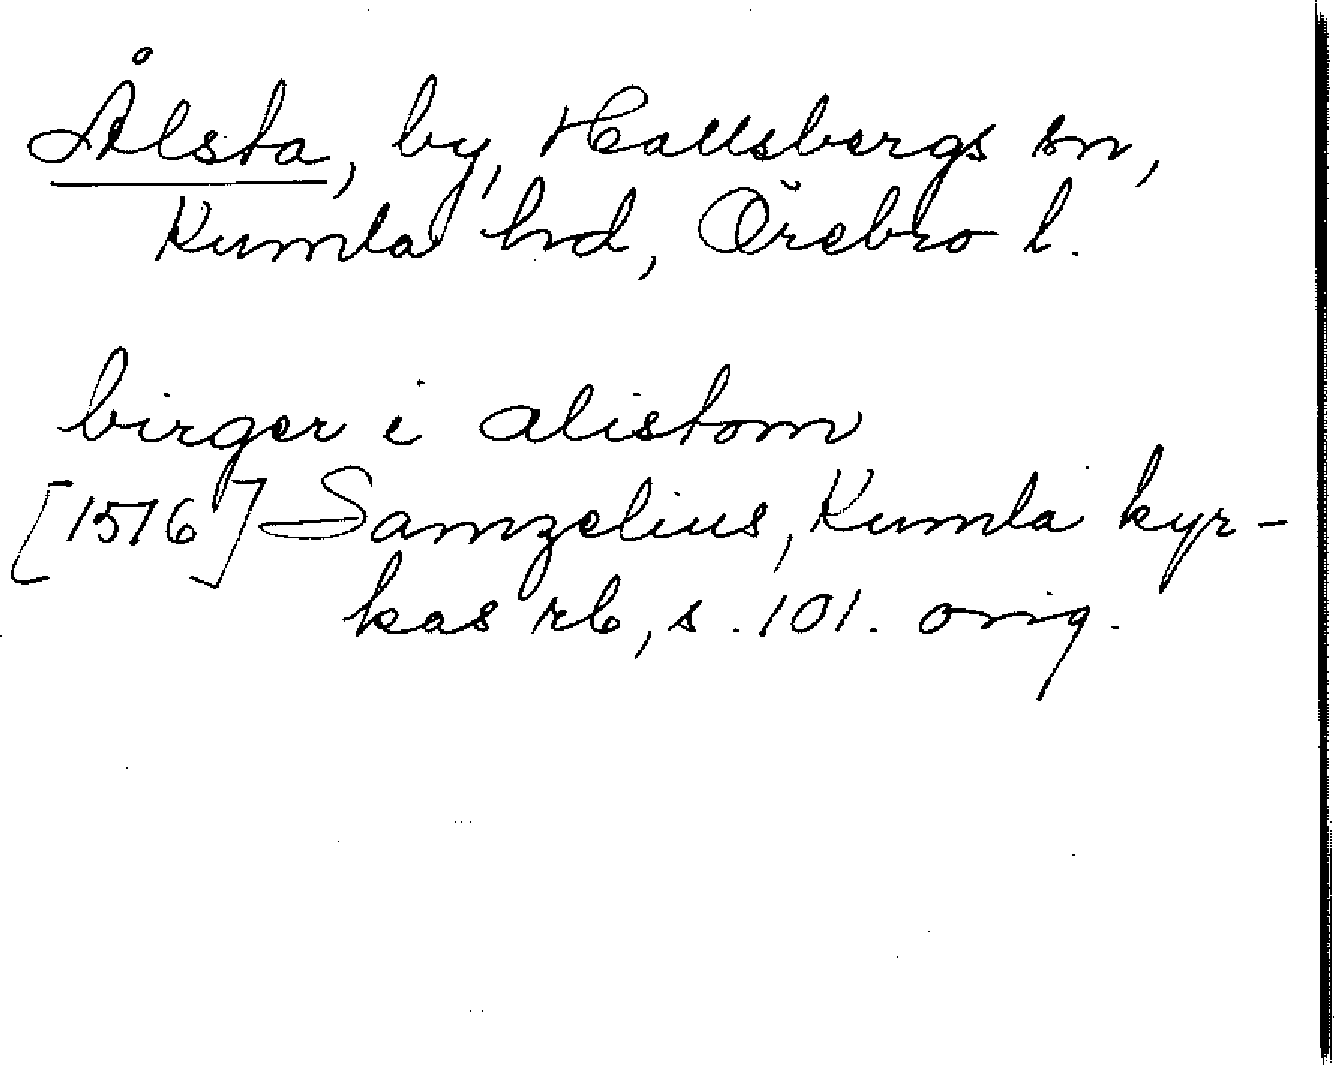 Ålsta, by, Hallsbergs sn,
Kumla hd, Örebro l.
birger i alistom
[1516] Samzelius, Kumla kyr-
kas rb, s. 101. orig.